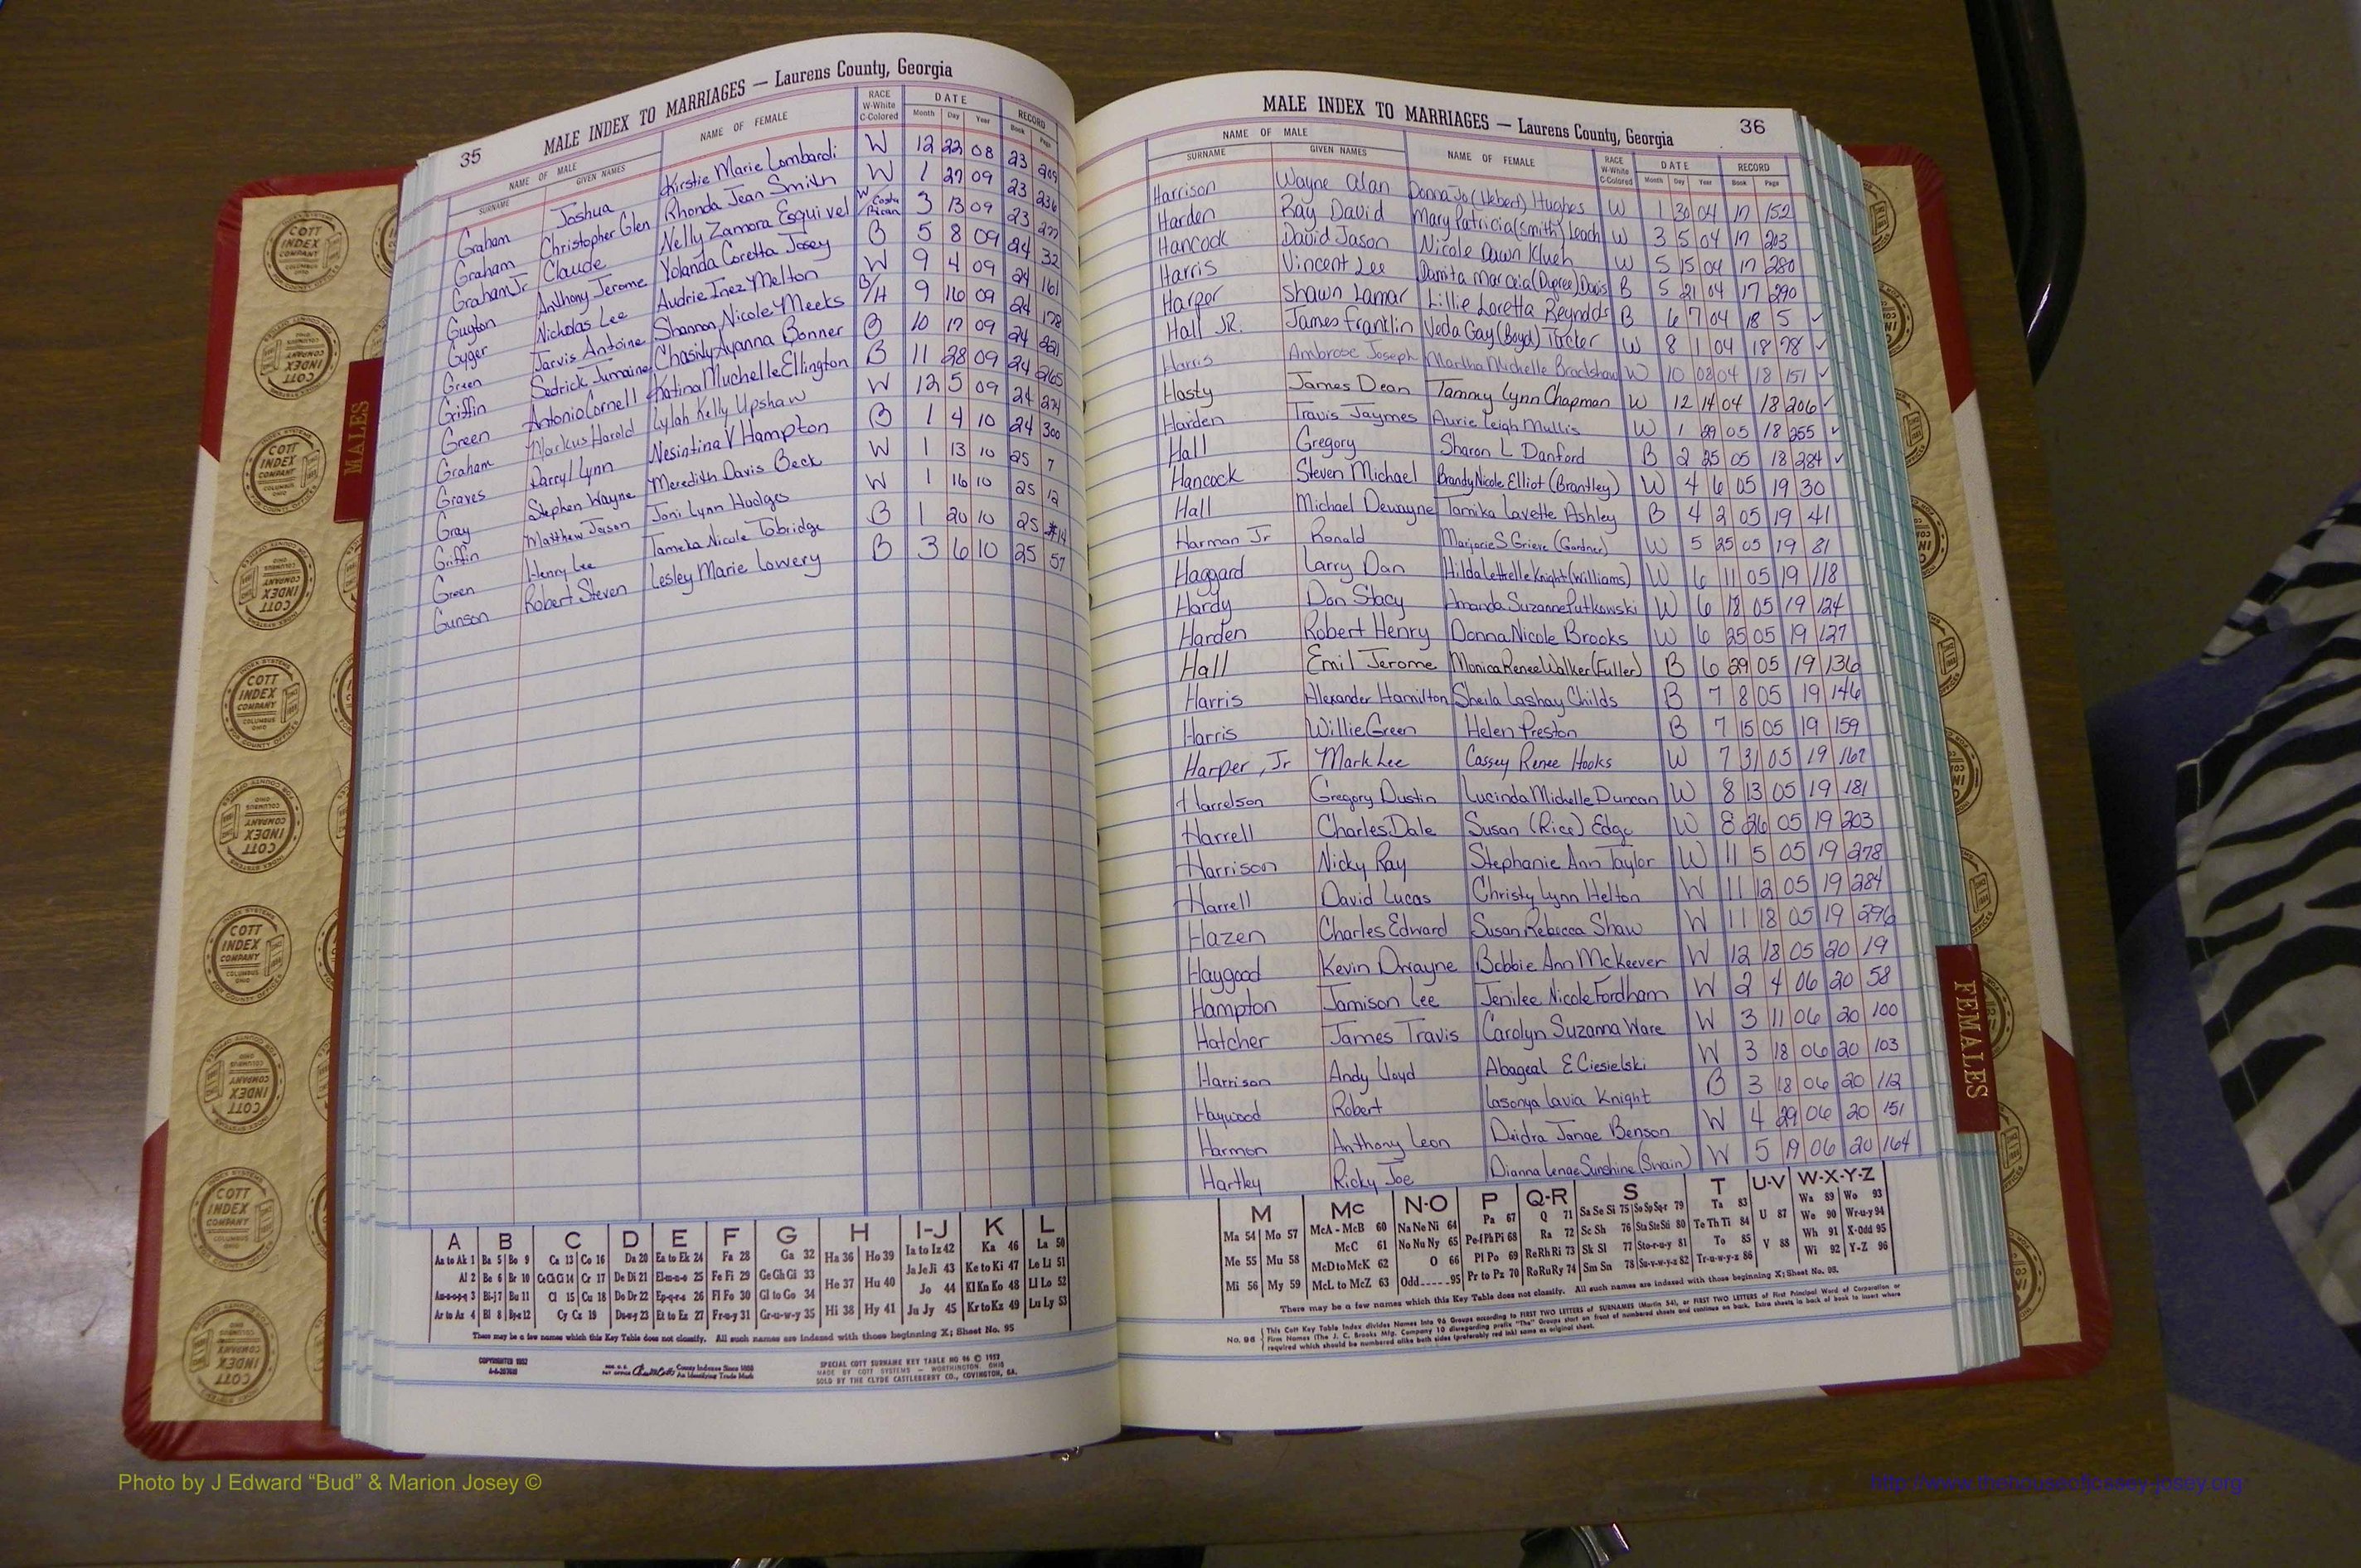 35 MALE INDEX TO MARRIAGES — Laurens County, Georgia
NAME OF MALE NAME OF FEMALE RACE W-White C-Colored DATE RECORD
SURNAME GIVEN NAMES Month Day Year Book Page
Graham Joshua Kirstie Marie Lombardi W 12 22 08 23 209
Graham Christopher Glen Rhonda Jean Smith W 1 27 09 23 236
Graham Jr Claude Nelly Zamora Esquivel W/Costa Rican 3 13 09 23 277
Guyton Anthony Jerome Yolanda Coretta Josey B 5 8 09 24 32
Gyger Nicholas Lee Audrie Inez Melton W 9 4 09 24 161
Green Jarvis Antoine Shannon Nicole Meeks B/H 9 16 09 24 178
Griffin Sedrick Jumaine Chasity Ayanna Bonner B 10 17 09 24 221
Green Antonio Cornell Katina Muchelle Ellington B 11 28 09 24 265
Graham Markus Harold Lylah Kelly Upshaw W 12 5 09 24 274
Graves Darryl Lynn Nesintina V Hampton B 1 4 10 24 300
Gray Stephen Wayne Meredith Davis Beck W 1 13 10 25 7
Griffin Matthew Jason Joni Lynn Hudgos W 1 16 10 25 12
Green Henry Lee Tameka Nicole Tobridge B 1 20 10 25 #14
Gunson Robert Steven Lesley Marie Lowery B 3 6 10 25 57
A B C D E F G H I-J K L
Aa to Ak 1 Ba 5 Be 9 Ca 13 Co 16 Da 20 Ea to Ek 24 Fa 28 Ga 32 Ha 36 Ho 39 Ia to Iz 42 Ka 46 La 50
Al 2 Be 6 Br 10 Ce Ch Ci 14 Cr 17 De Di 21 El-m-n-o 25 Fe Fi 29 Ge Gh Gi 33 He 37 Hu 40 Ja Je Ji 43 Ke to Ki 47 Le Li 51
Am-n-o-p-q 3 Bi-j 7 Bu 11 Cl 15 Cu 18 Do Dr 22 Ep-q-r-s 26 Fl Fo 30 Gl to Go 34 Hi 38 Hy 41 Jo 44 Kl Kn Ko 48 Ll Lo 52
Ar to Az 4 Bl 8 By-z 12 Cy Cz 19 Du-w-y 23 Et to Ez 27 Fr-u-y 31 Gr-u-w-y 35 Ju Jy 45 Kr to Kz 49 Lu Ly 53
There may be a few names which this Key Table does not classify. All such names are indexed with those beginning X; Sheet No. 95
COPYRIGHTED 1952
County Indexes Since 1888
An Identifying Trade Mark
SPECIAL COTT SURNAME KEY TABLE NO 96 © 1952
MADE BY COTT SYSTEMS — WORTHINGTON, OHIO
SOLD BY THE CLYDE CASTLEBERRY CO., COVINGTON, GA.
MALE INDEX TO MARRIAGES — Laurens County, Georgia 36
NAME OF MALE NAME OF FEMALE RACE W-White C-Colored DATE RECORD
SURNAME GIVEN NAMES Month Day Year Book Page
Harrison Wayne Alan Donna Jo (Hebert) Hughes W 1 30 04 17 152
Harden Ray David Mary Patricia (Smith) Leach W 3 5 04 17 203
Hancock David Jason Nicole Dawn Klueh W 5 15 04 17 280
Harris Vincent Lee Damita Marcaia (Dupree) Davis B 5 21 04 17 290
Harper Shawn Lamar Lillie Loretta Reynolds B 6 7 04 18 5 ✓
Hall JR. James Franklin Veda Gay (Boyd) Tucker W 8 1 04 18 78 ✓
Harris Ambrose Joseph Martha Michelle Bradshaw W 10 02 04 18 151 ✓
Hasty James Dean Tammy Lynn Chapman W 12 14 04 18 206 ✓
Harden Travis Jaymes Aurie Leigh Mullis W 1 29 05 18 255 ✓
Hall Gregory Sharon L Danford B 2 25 05 18 284 ✓
Hancock Steven Michael Brandy Nicole Elliot (Brantley) W 4 6 05 19 30
Hall Michael Dewayne Tamika Lavette Ashley B 4 2 05 19 41
Harman Jr Ronald Marjorie S Grieve (Gardner) W 5 25 05 19 81
Haggard Larry Dan Hilda Lettrelle Knight (Williams) W 6 11 05 19 118
Hardy Don Stacy Amanda Suzanne Putkowski W 6 18 05 19 124
Harden Robert Henry Donna Nicole Brooks W 6 25 05 19 127
Hall Emil Jerome Monica Renee Walker (Fuller) B 6 29 05 19 136
Harris Alexander Hamilton Sheila Lashay Childs B 7 8 05 19 146
Harris Willie Green Helen Preston B 7 15 05 19 159
Harper, Jr Mark Lee Cassey Renee Hooks W 7 31 05 19 167
Harrelson Gregory Dustin Lucinda Michelle Duncan W 8 13 05 19 181
Harrell Charles Dale Susan (Rice) Edge W 8 26 05 19 203
Harrison Nicky Ray Stephanie Ann Taylor W 11 5 05 19 278
Harrell David Lucas Christy Lynn Helton W 11 12 05 19 284
Hazen Charles Edward Susan Rebecca Shaw W 11 18 05 19 296
Haygood Kevin Dwayne Bobbie Ann McKeever W 12 18 05 20 19
Hampton Jamison Lee Jenilee Nicole Fordham W 2 4 06 20 58
Hatcher James Travis Carolyn Suzanna Ware W 3 11 06 20 100
Harrison Andy Lloyd Abageal E Ciesielski W 3 18 06 20 103
Haywood Robert Lasonya Lavia Knight B 3 18 06 20 112
Harmon Anthony Leon Deidra Janae Benson W 4 29 06 20 151
Hartley Ricky Joe Dianna Lenae Sunshine (Swain) W 5 19 06 20 164
M Mc N-O P Q-R S T U-V W-X-Y-Z
Ma 54 Mo 57 McA - McB 60 Na Ne Ni 64 Pa 67 Q 71 Sa Se Si 75 So Sp Sq-r 79 Ta 83 U 87 Wa 89 Wo 93
Me 55 Mu 58 McC 61 No Nu Ny 65 Pe-f Ph Pi 68 Ra 72 Sc Sh 76 Sta Ste Sti 80 Te Th Ti 84 V 88 We 90 Wr-u-y 94
Mi 56 My 59 McD to McK 62 O 66 Pl Po 69 Re Rh Ri 73 Sk Sl 77 Sto-r-u-y 81 To 85 Wh 91 X-Odd 95
McL to McZ 63 Odd.....95 Pr to Pz 70 Ro Ru Ry 74 Sm Sn 78 Su-v-w-y-z 82 Tr-u-w-y-z 86 Wi 92 Y-Z 96
There may be a few names which this Key Table does not classify. All such names are indexed with those beginning X; Sheet No. 95.
No. 96 This Cott Key Table Index divides Names into 96 Groups according to FIRST TWO LETTERS of SURNAMES (Martin 54), or FIRST TWO LETTERS of First Principal Word of Corporation or
Firm Names (The J. C. Brooks Mfg. Company 10 disregarding prefix "The" Groups start on front of numbered sheets and continue on back. Extra sheets in back of book to insert where
required which should be numbered alike both sides (preferably red ink) same as original sheet.
MALES
FEMALES
COTT INDEX COMPANY COLUMBUS OHIO
INDEX SYSTEMS FOR COUNTY OFFICES
Photo by J Edward “Bud” & Marion Josey ©
http://www.thehouseofjossey-josey.org